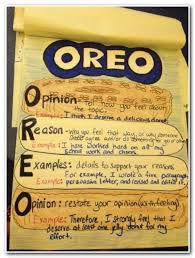 OREO
Opinion: Tell how you feel about
the topic.
Example: I think I deserve a delicious donut.
Reason: Why you feel that way, or why someone
agree and/or do something
Example: I have worked hard on all my
school work and chores.
Examples: details to support your reasons
For example, I wrote a five paragraph
persuasive letter, and revised and edited it.
Opinion: restate your opinion
Example: Therefore, I strongly feel that I
deserve at least one jelly donut for my
effort.